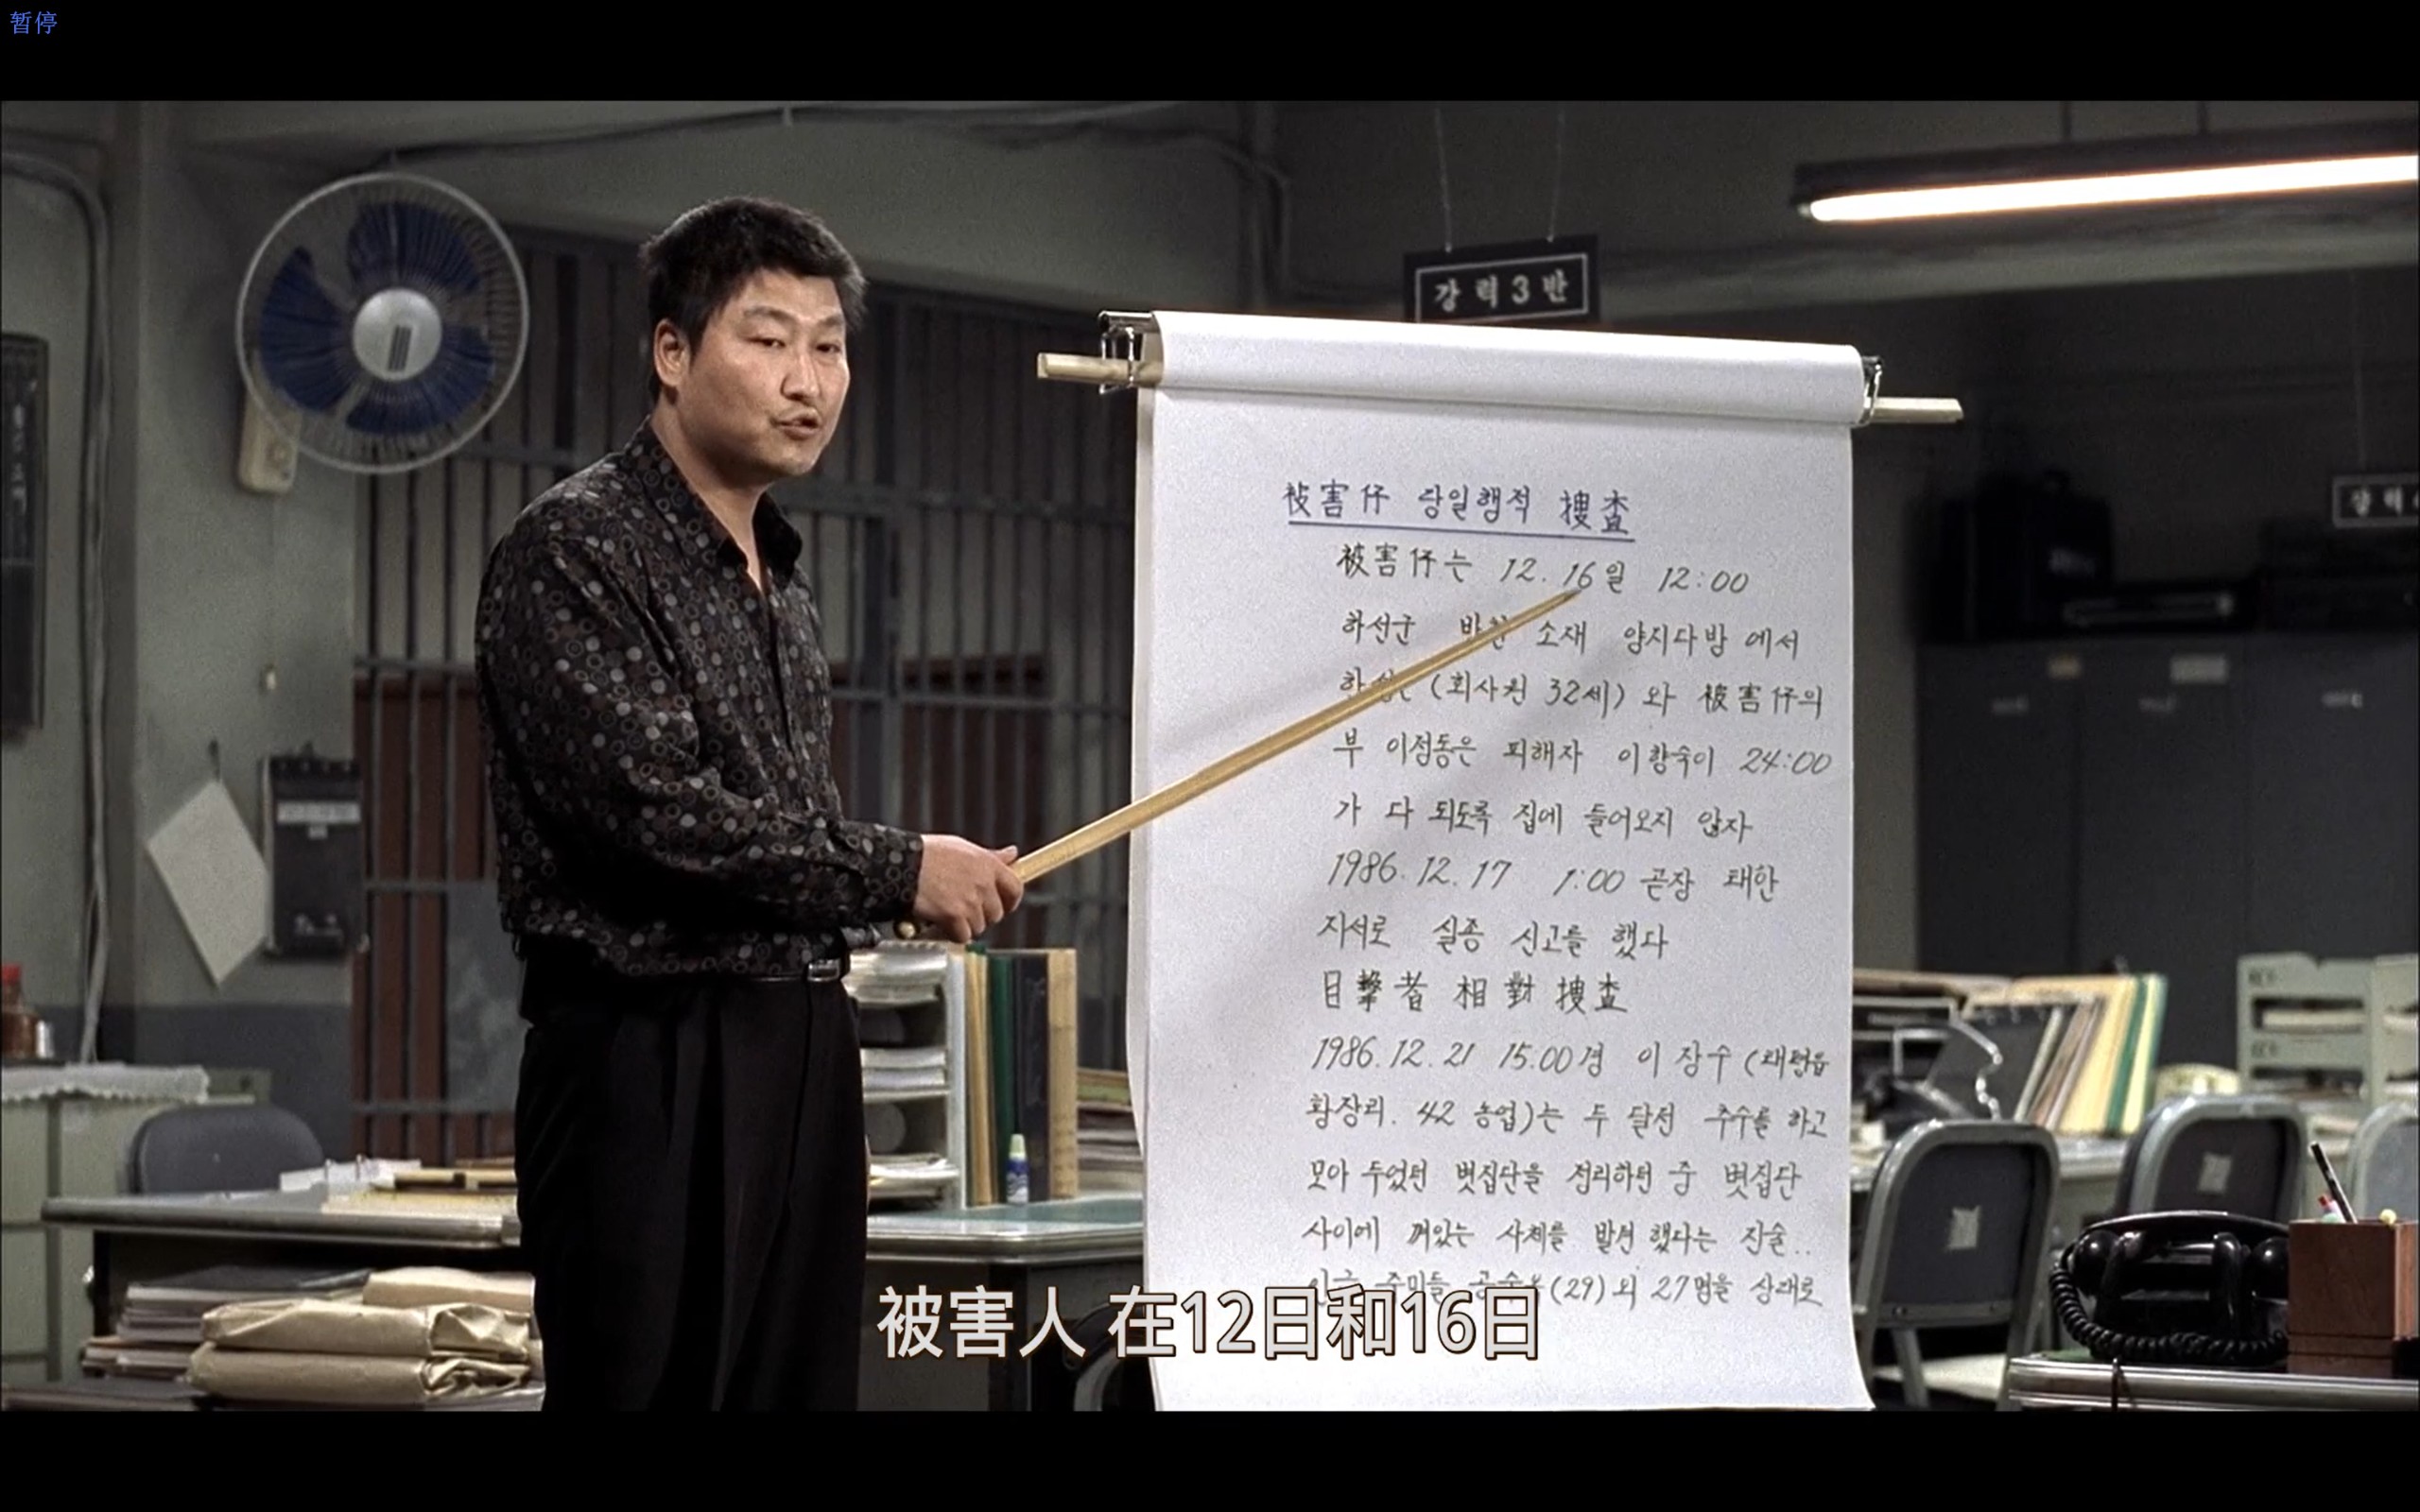 暂停
강력3반
강력
被害仔 당일행적 搜査
被害仔는 12. 16일 12:00
하선군 소재 양지다방 에서
(회사원 32세) 와 被害仔의
부 이정동은 피해자 이향숙이 24:00
가 다 되도록 집에 들어오지 않자
1986. 12. 17 1:00 곧장 태안
지서로 실종 신고를 했다
目擊者 相對 搜査
1986. 12. 21 15.00경 이 장수 (태령읍
황장리. 42 농업)는 두 달전 추수를 하고
모아 두었던 볏집단을 정리하던 중 볏집단
사이에 껴있는 사체를 발견 했다는 진술..
주민들 (29) 외 27명을 상대로
被害人 在12日和16日